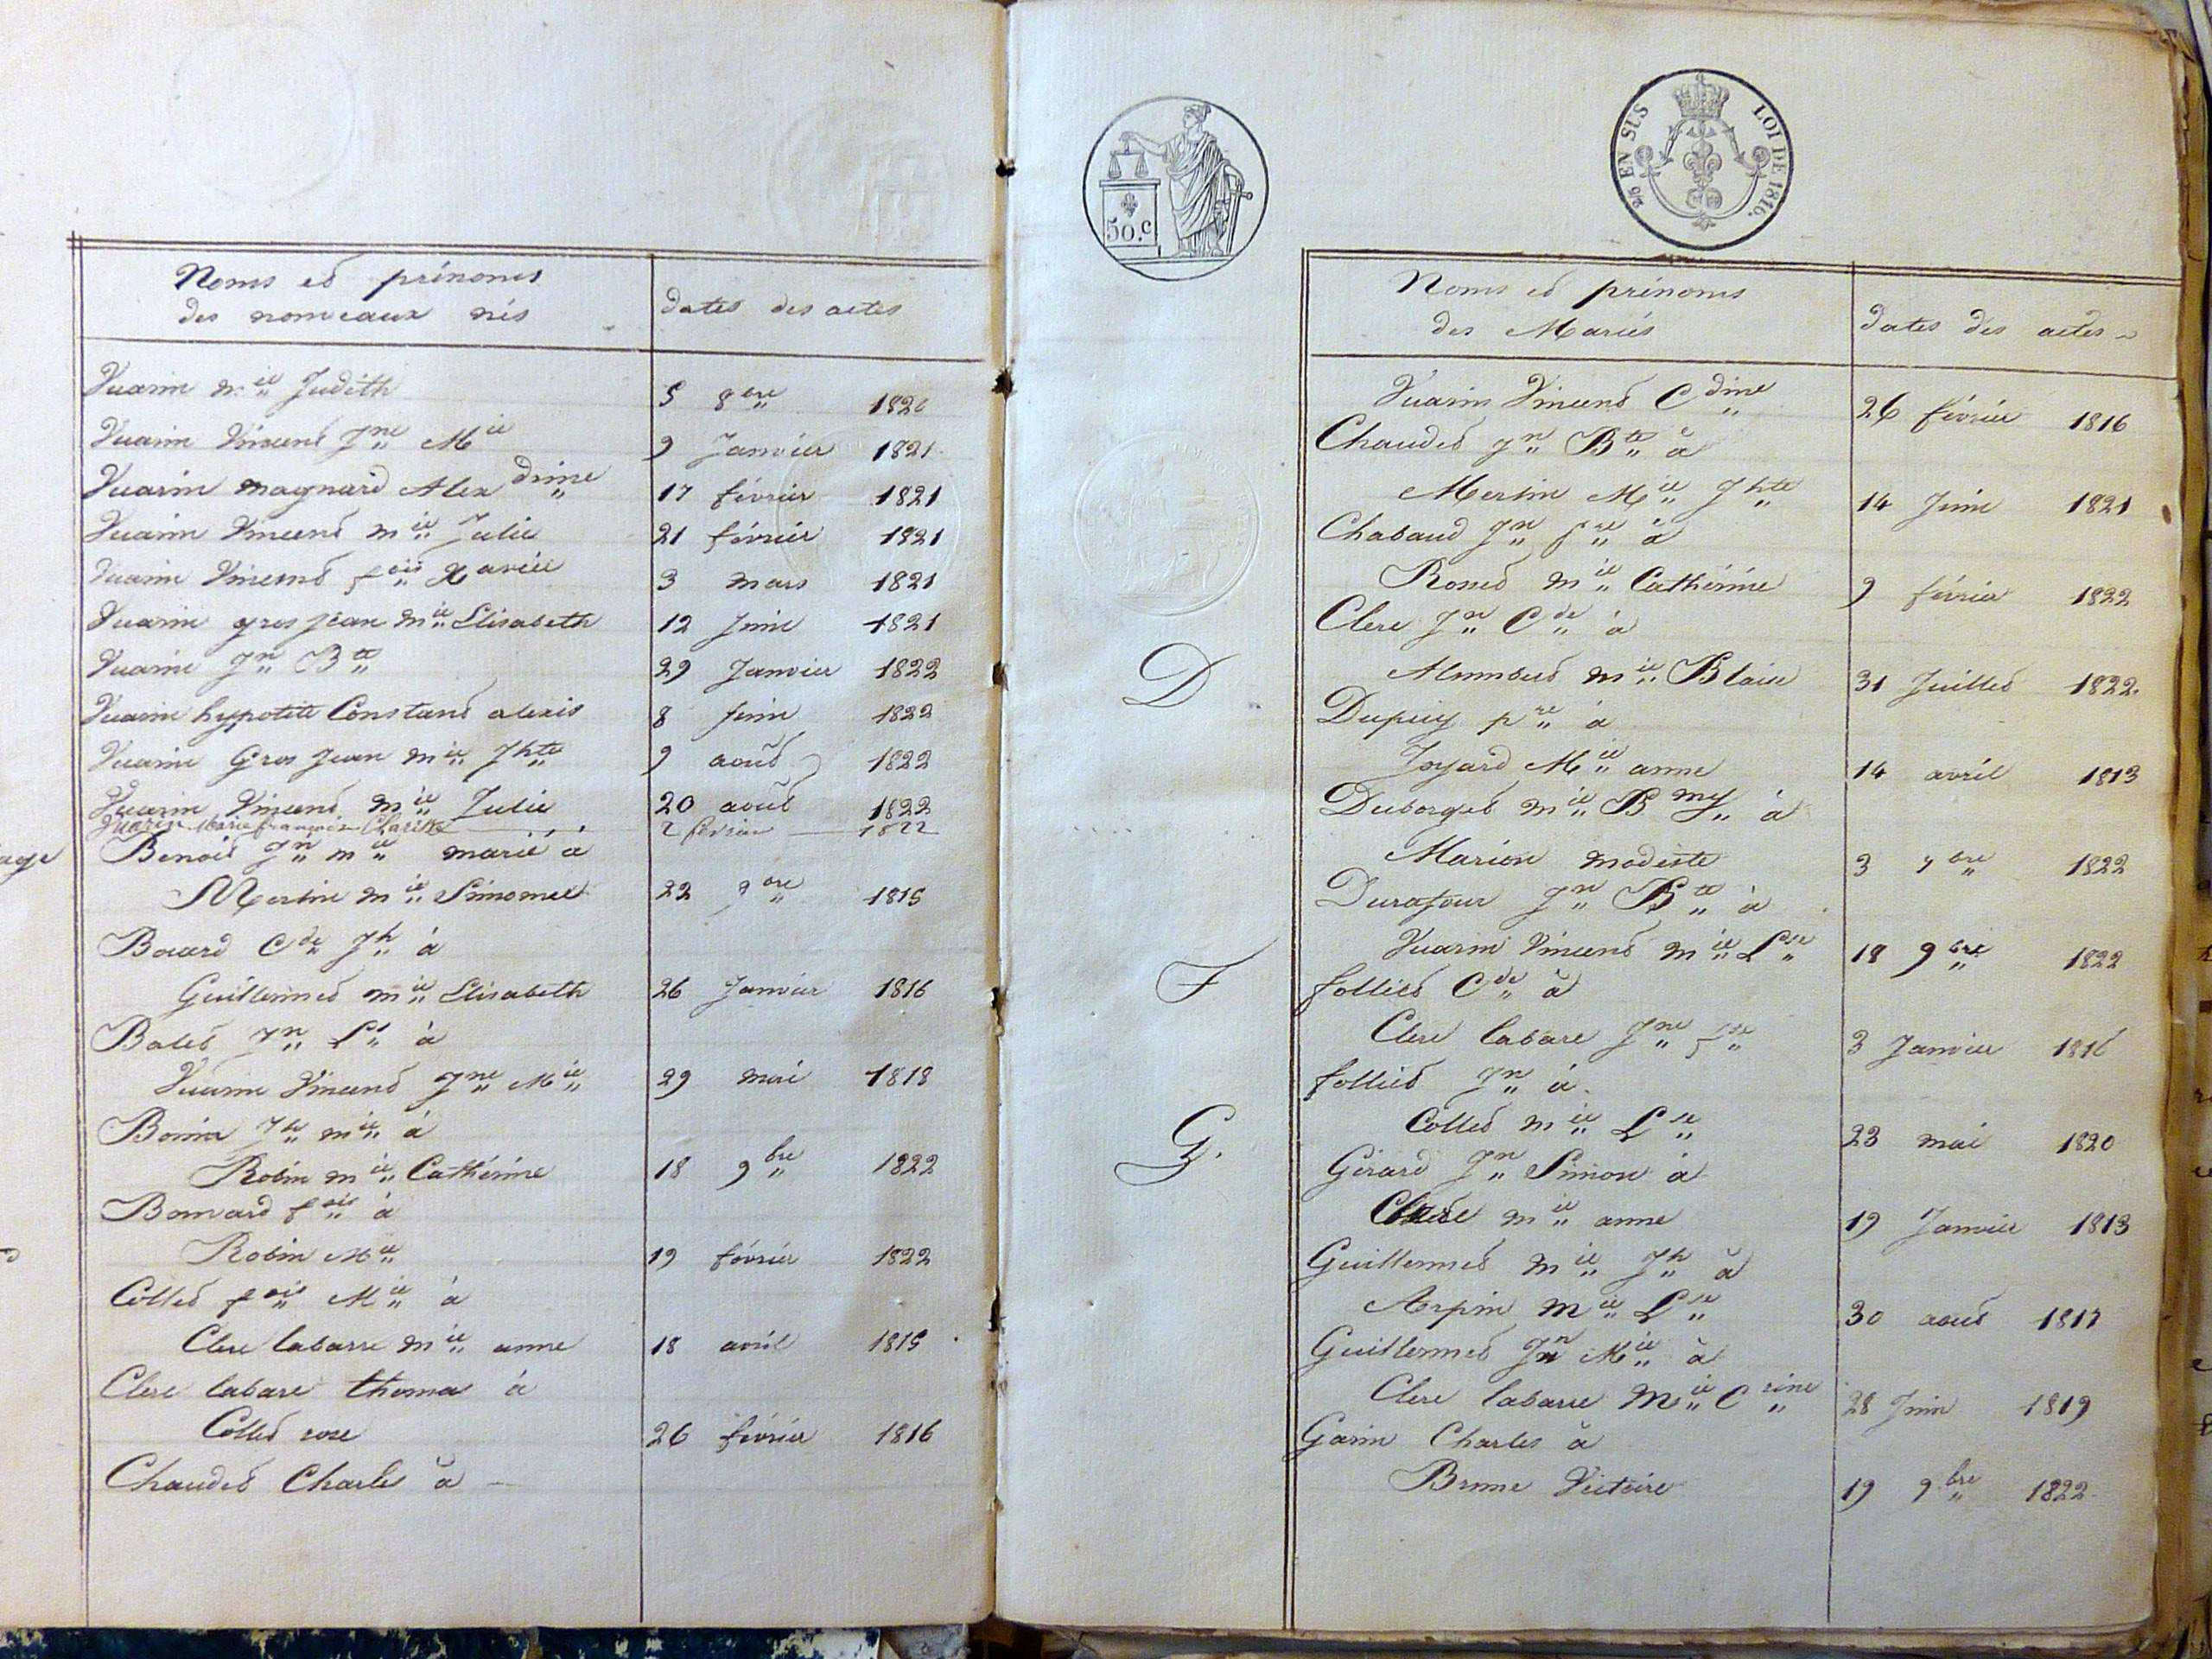 Noms et prénoms
des nouveaux nés
dates des actes
Vuarin m.ie Judith 5 8bre 1820
Vuarin Vincend Jne Mie 9 Janvier 1821
Vuarin magnard Alexdrine 17 février 1821
Vuarin Vincend mie Julie 21 février 1821
Vuarin Vincend fois Xavier 3 mars 1821
Vuarin gros jean mie Elisabeth 12 Juin 1821
Vuarin Jn Bte 29 Janvier 1822
Vuarin hypolitte Constand alexis 8 juin 1822
Vuarin Gros Jean mie Jhte 9 août 1822
Vuarin Vincend mie Julie 20 août 1822
Vuarin Marie françoise Clarisse 2 février 1822
age
Benoit Jn mie marié à
Mertin mie Simonne 22 9bre 1815
Bouard Cde Jh à
Guillermet mie Elisabeth 26 Janvier 1816
Balet Jn Ls à
Vuarin Vincend Jne Mie 29 mai 1818
Jh mie à
Robin mie Cathérine 18 9bre 1822
Bornard fois à
Robin Mie 19 février 1822
Collet fois Mie à
Clerc labarre mie anne 18 avril 1815
Clerc labare thoma à
Collet rose 26 février 1816
Chaudet Charles à
50.c
EN SUS LOI DE 1816.
Noms et prénoms
des Mariés
dates des actes
Vuarin Vincend Cdine 26 février 1816
Chaudet Jn Bte à
Mertin Mie Jhte 14 Juin 1821
Chabaud Jn à
Romet mie Cathérine 9 février 1822
Clerc Jn Cde à
mie Blaise 31 Juillet 1822.
D
Dupuy pre à
Joyard Mie anne 14 avril 1813
Duborget mie Bmy à
Marion modeste 3 7bre 1822
Durafour Jn Bte à
Vuarin Vincend mie Lse 18 9bre 1822
F
folliet Cde à
Clerc labare Jne fse 3 Janvier 1816
folliet Jn à
Collet mie Lse 23 mai 1820
G.
Girard Jn Simon à
mie anne 19 Janvier 1813
Guillermet mie Jh à
Arpin mie Lse 30 août 1817
Guillermet Jn Mie à
Clerc labarre Mie Crine 28 Juin 1819
Garin Charles à
Brune Victoire 19 9bre 1822